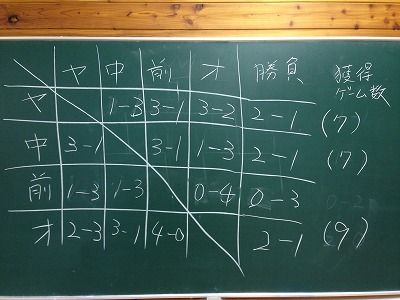 ヤ 中 前 オ 勝負 獲得ゲーム数
ヤ 1-3 3-1 3-2 2-1 (7)
中 3-1 3-1 1-3 2-1 (7)
前 1-3 1-3 0-4 0-3
オ 2-3 3-1 4-0 2-1 (9)